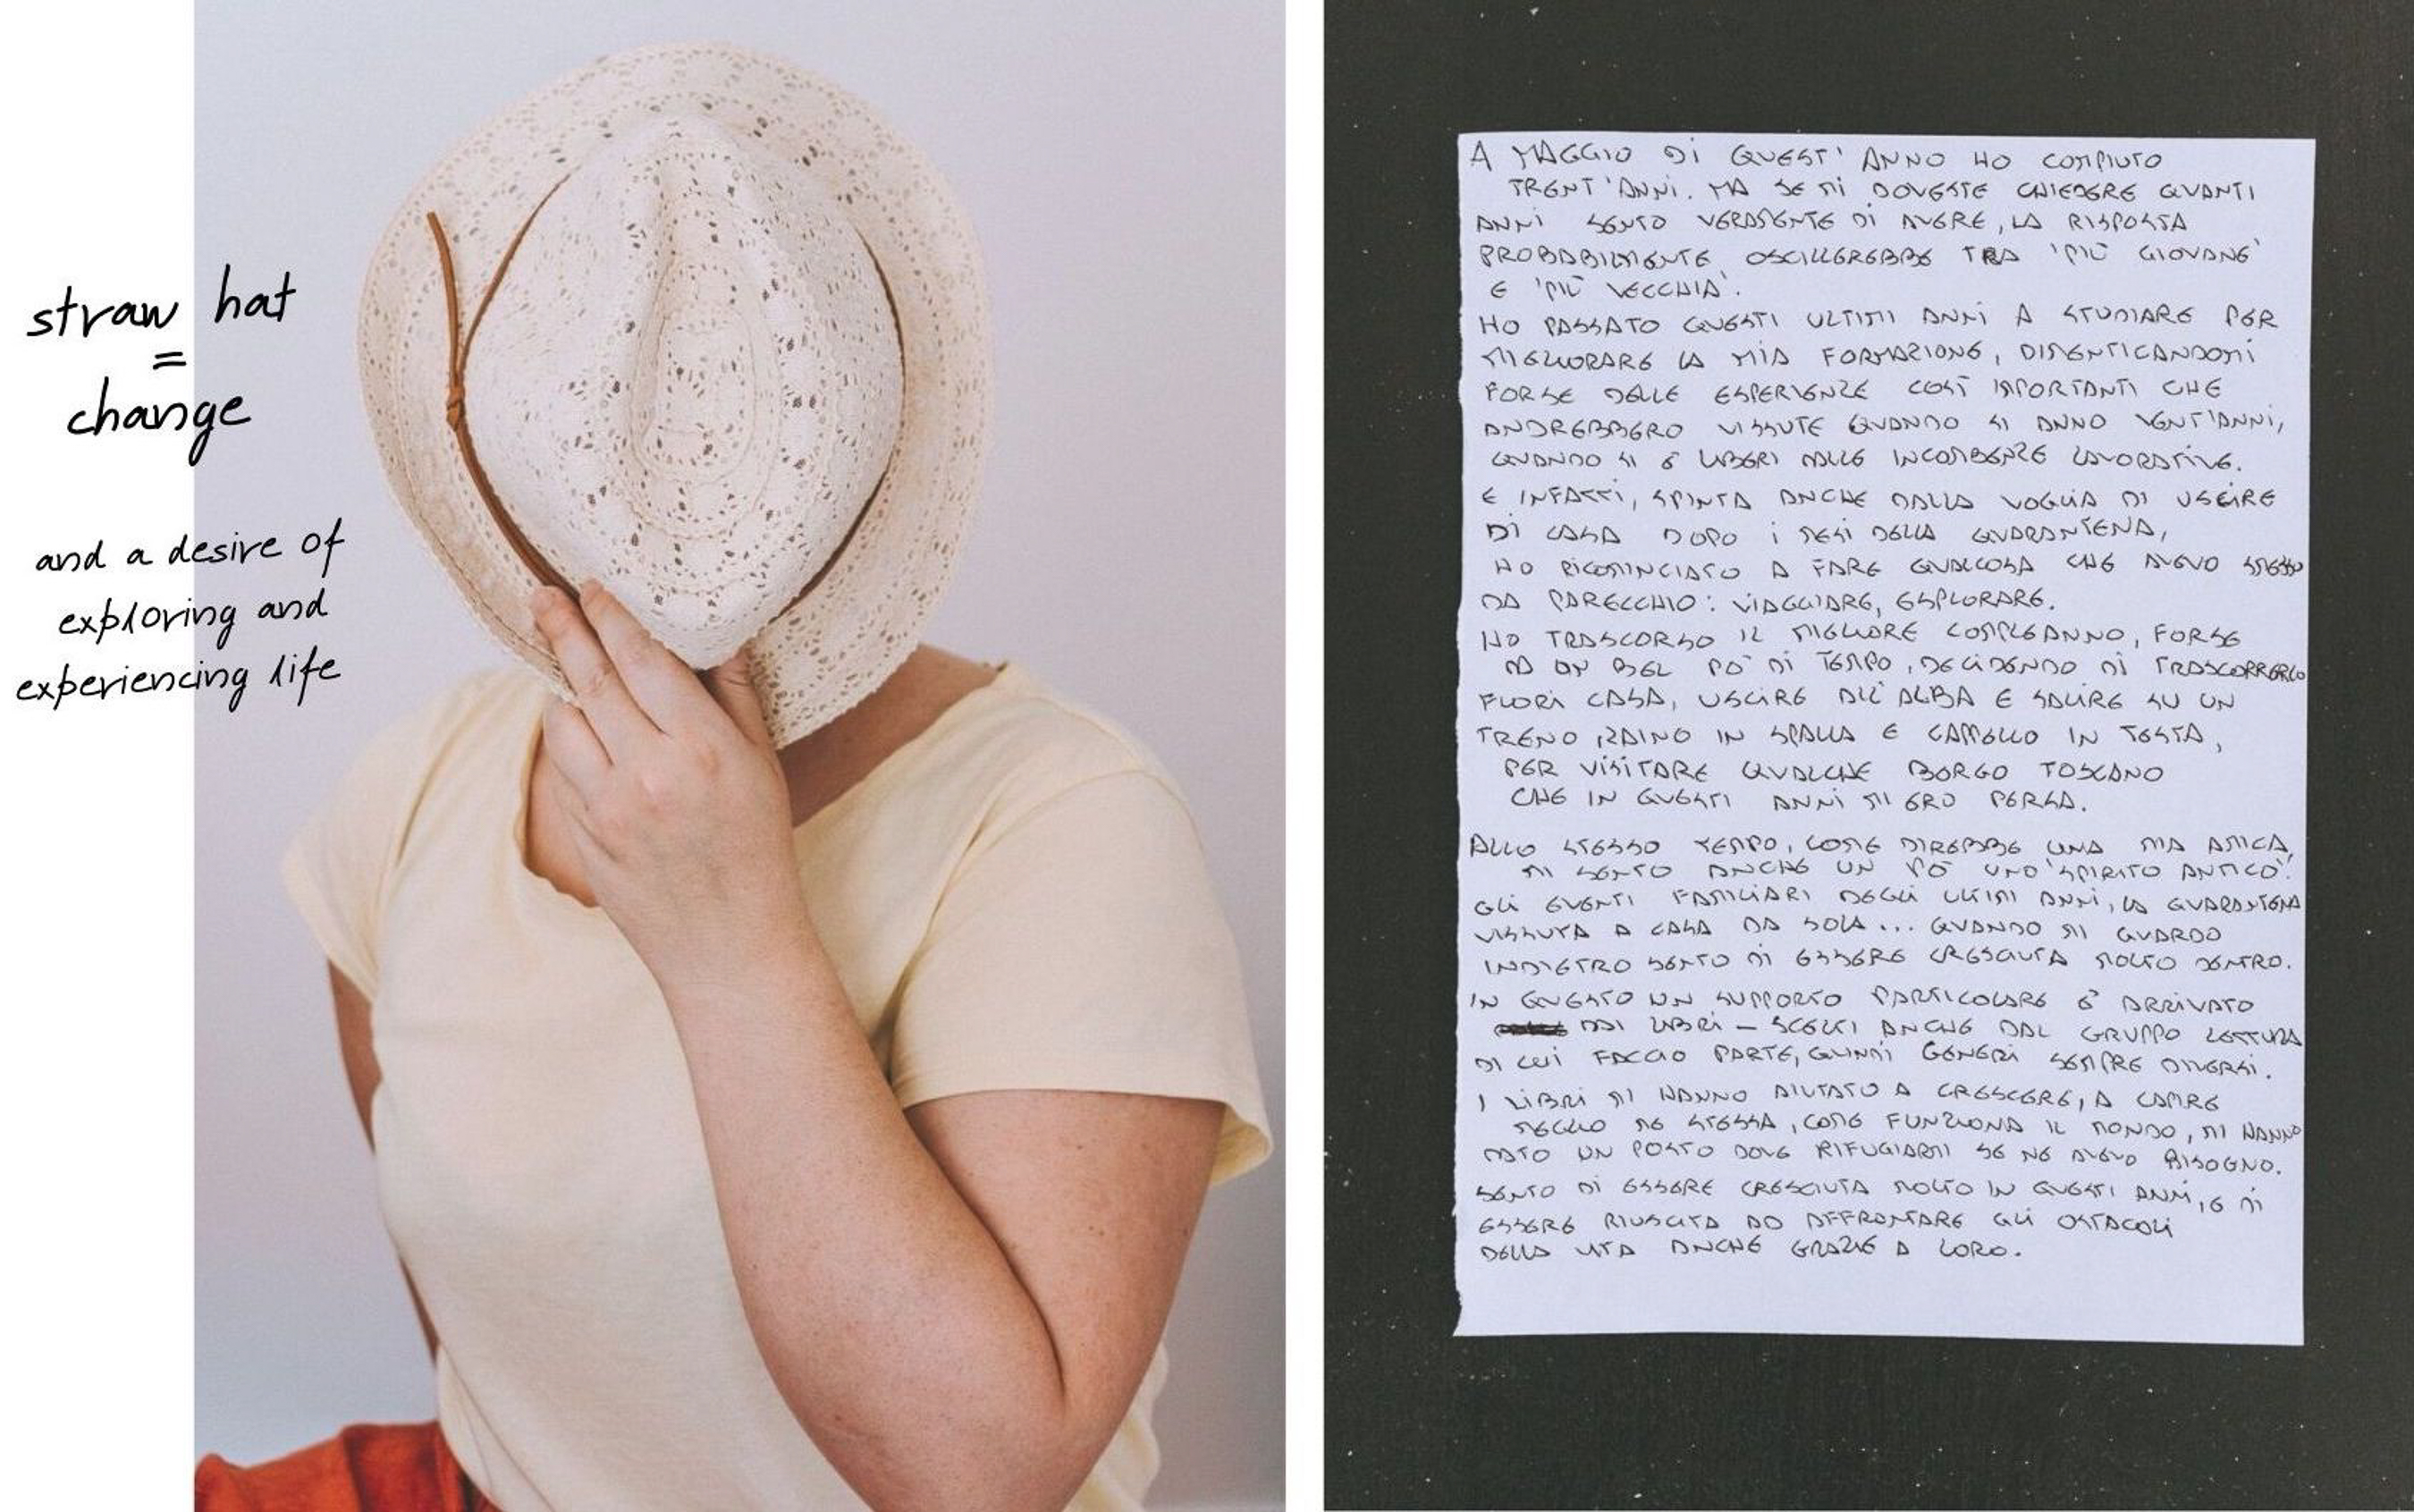 straw hat
=
change
and a desire of
exploring and
experiencing life
A MAGGIO DI QUEST'ANNO HO COMPIUTO
TRENT'ANNI. MA SE MI DOVESTE CHIEDERE QUANTI
ANNI SENTO VERAMENTE DI AVERE, LA RISPOSTA
PROBABILMENTE OSCILLEREBBE TRA 'PIÙ GIOVANE'
E 'PIÙ VECCHIA'.
HO PASSATO QUESTI ULTIMI ANNI A STUDIARE PER
MIGLIORARE LA MIA FORMAZIONE, DIMENTICANDOMI
FORSE DELLE ESPERIENZE COSÌ IMPORTANTI CHE
ANDREBBERO VISSUTE QUANDO SI ANNO VENT'ANNI,
QUANDO SI È LIBERI DALLE INCOMBENZE LAVORATIVE.
E INFATTI, SPINTA ANCHE DALLA VOGLIA DI USCIRE
DI CASA DOPO I MESI DELLA QUARANTENA,
HO RICOMINCIATO A FARE QUALCOSA CHE AVEVO SMESSO
DA PARECCHIO: VIAGGIARE, ESPLORARE.
HO TRASCORSO IL MIGLIORE COMPLEANNO, FORSE
DA UN BEL PO' DI TEMPO, DECIDENDO DI TRASCORRERLO
FUORI CASA, USCIRE ALL'ALBA E SALIRE SU UN
TRENO, ZAINO IN SPALLA E CAPPELLO IN TESTA,
PER VISITARE QUALCHE BORGO TOSCANO
CHE IN QUESTI ANNI MI ERO PERSA.
ALLO STESSO TEMPO, COME DIREBBE UNA MIA AMICA,
MI SENTO ANCHE UN PO' UNO 'SPIRITO ANTICO'.
GLI EVENTI FAMILIARI DEGLI ULTIMI ANNI, LA QUARANTENA
VISSUTA A CASA DA SOLA... QUANDO MI GUARDO
INDIETRO SENTO DI ESSERE CRESCIUTA MOLTO DENTRO.
IN QUESTO UN SUPPORTO PARTICOLARE È ARRIVATO
DAI LIBRI – SCELTI ANCHE DAL GRUPPO LETTURA
DI CUI FACCIO PARTE, QUINDI GENERI SEMPRE DIVERSI.
I LIBRI MI HANNO AIUTATO A CRESCERE, A CAPIRE
MEGLIO ME STESSA, COME FUNZIONA IL MONDO, MI HANNO
DATO UN POSTO DOVE RIFUGIARMI SE NE AVEVO BISOGNO.
SENTO DI ESSERE CRESCIUTA MOLTO IN QUESTI ANNI, E DI
ESSERE RIUSCITA AD AFFRONTARE GLI OSTACOLI
DELLA VITA ANCHE GRAZIE A LORO.